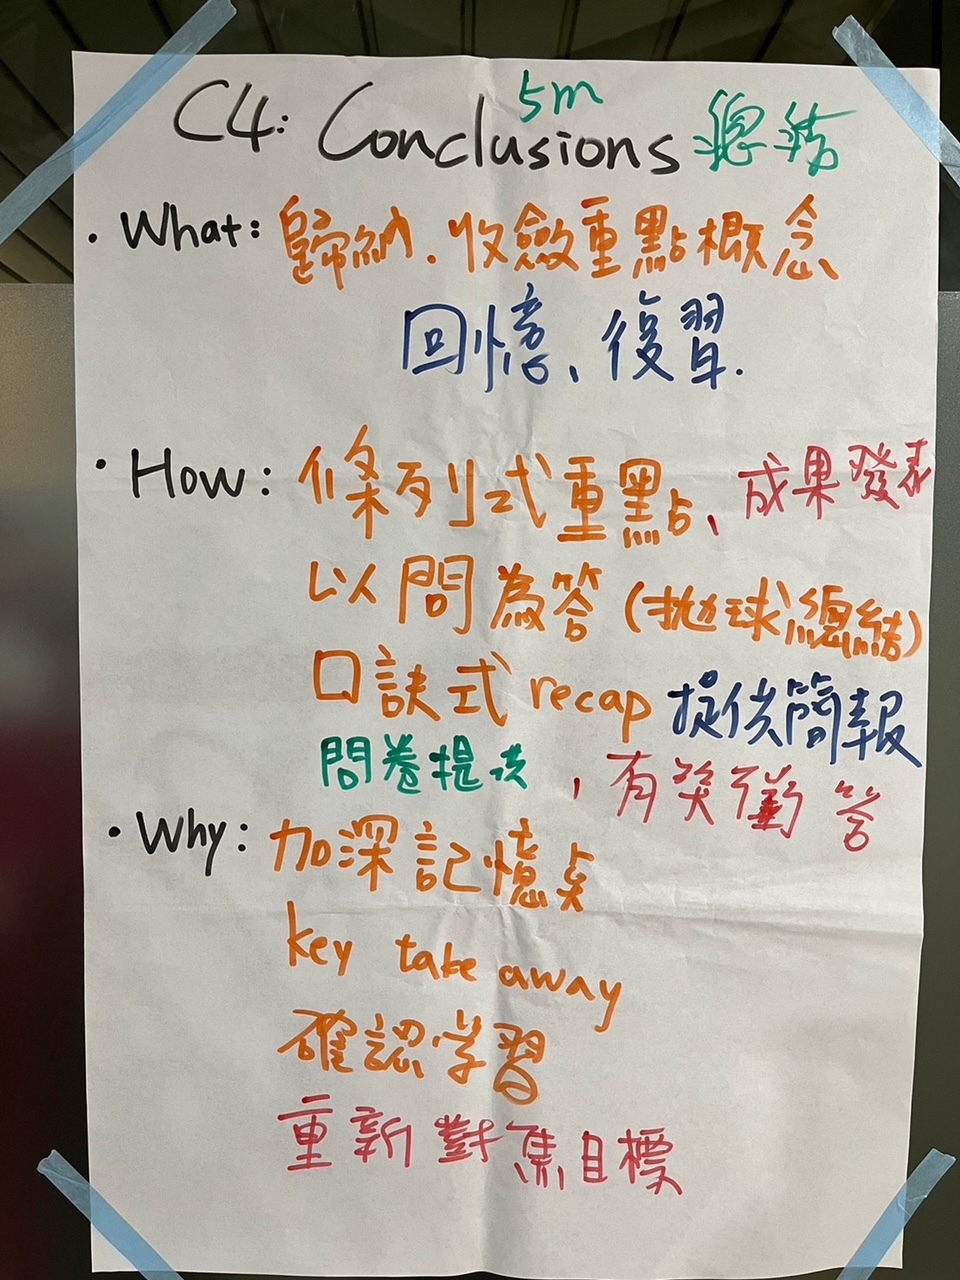 C4: Conclusions 5m 總結
· What: 歸納、收斂重點概念
回憶、復習.
· How: 條列式重點、成果發表
以問為答 (拋球總結)
口訣式 recap 提供簡報
問卷提供, 有獎徵答
· Why: 加深記憶点
key take away
確認学習
重新對焦目標